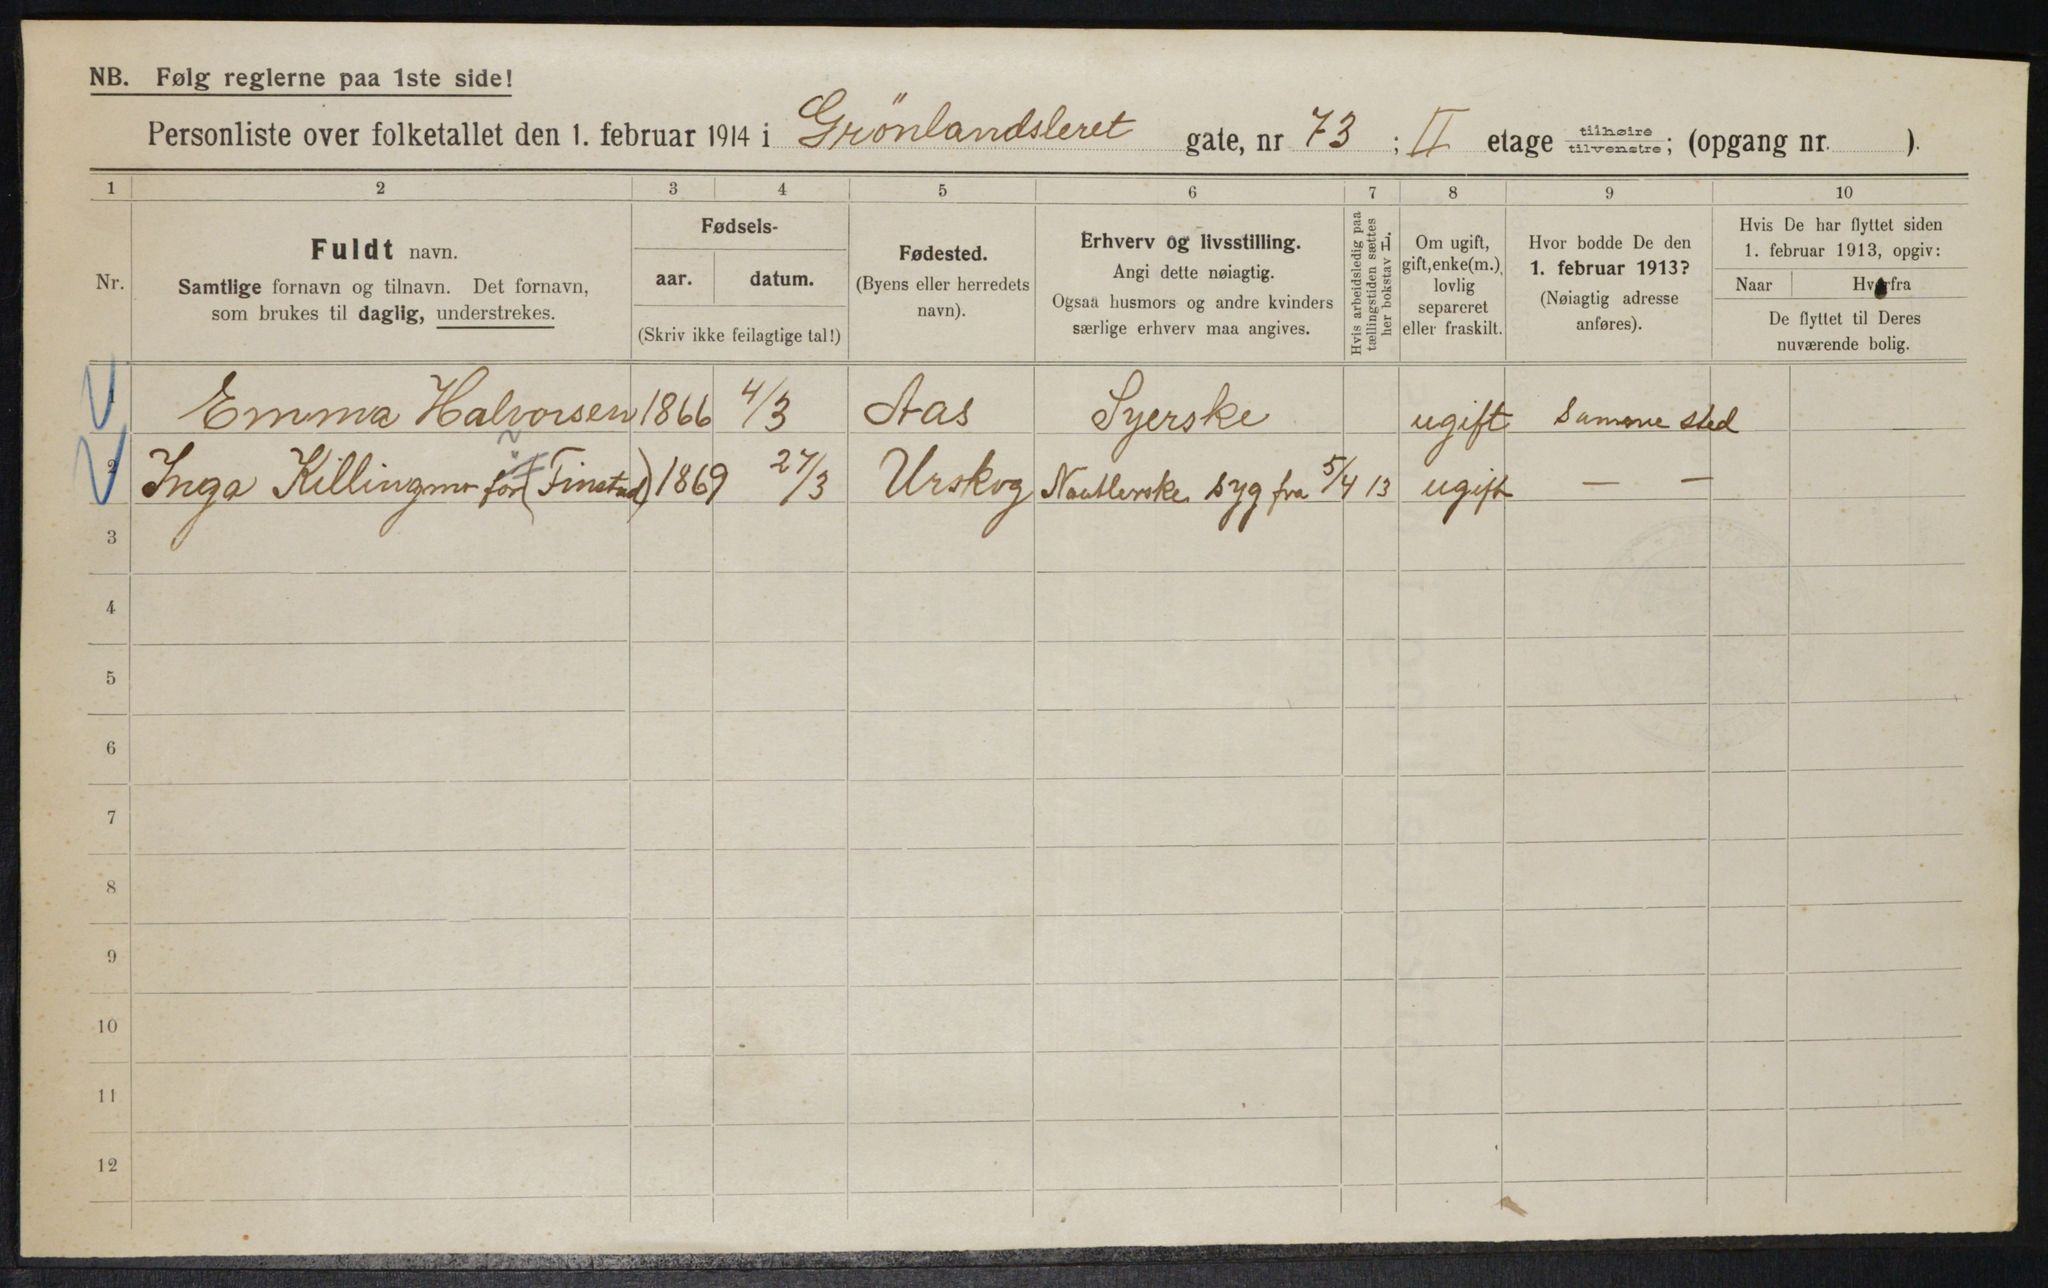 NB. Følg reglerne paa 1ste side!
Personliste over folketallet den 1. februar 1914 i Grönlandsleret gate, nr 73 ; II etage tilhøire tilvenstre; (opgang nr. ).
1 2 3 4 5 6 7 8 9 10
Nr.
Fuldt navn.
Samtlige fornavn og tilnavn. Det fornavn,
som brukes til daglig, understrekes.
Fødsels-
aar. datum.
(Skriv ikke feilagtige tal!)
Fødested.
(Byens eller herredets
navn).
Erhverv og livsstilling.
Angi dette nøiagtig.
Ogsaa husmors og andre kvinders
særlige erhverv maa angives.
Hvis arbeidsledig paa
tællingstiden sættes
her bokstav L.
Om ugift,
gift, enke(m.),
lovlig
separeret
eller fraskilt.
Hvor bodde De den
1. februar 1913?
(Nøiagtig adresse
anføres).
Hvis De har flyttet siden
1. februar 1913, opgiv:
Naar Hvorfra
De flyttet til Deres
nuværende bolig.
1 Emma Halvorsen 1866 4/3 Aas Syerske ugift samme sted
2 Inga Killingmo för (Finstad) 1869 27/3 Urskog syg fra 5/4 13 ugift — —
3
4
5
6
7
8
9
10
11
12